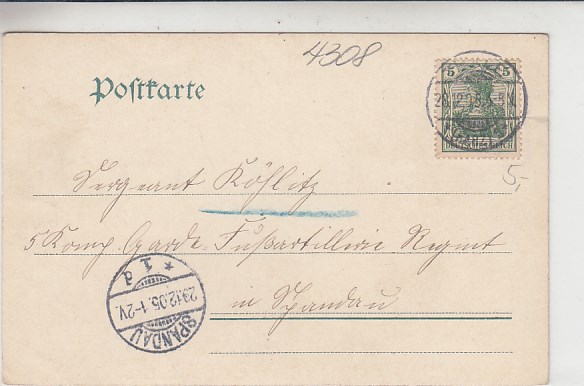 4308
Postkarte
5 5
28.12.05
DEUTSCHES REICH
5,-
Sergeant Köhlitz
5 Komp. Garde-Fußartillerie Regimt
in Spandau
SPANDAU
* 1 d
29.12.05. 1-2V.